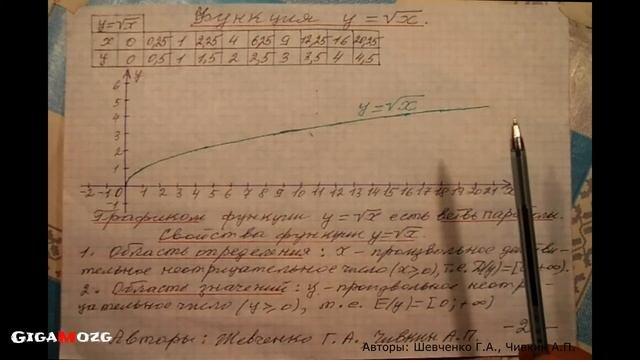 Функция y=√x.
y=√x
x 0 0,25 1 2,25 4 6,25 9 12,25 16 20,25
y 0 0,5 1 1,5 2 2,5 3 3,5 4 4,5
y
6
5
4
3
2
1
y=√x
-2 -1 0 1 2 3 4 5 6 7 8 9 10 11 12 13 14 15 16 17 18 19 20 21 x
-1
Графиком функции y=√x есть ветвь параболы.
Свойства функции y=√x.
1. Область определения: x - произвольное действи-
тельное неотрицательное число (x≥0), т.е. D(y)=[0;+∞).
2. Область значений: y - произвольное неотри-
цательное число (y≥0), т.е. E(y)=[0;+∞)
-2-
Авторы: Шевченко Г.А., Чивкин А.П.
GIGAMOZG
Авторы: Шевченко Г.А., Чивкин А.П.